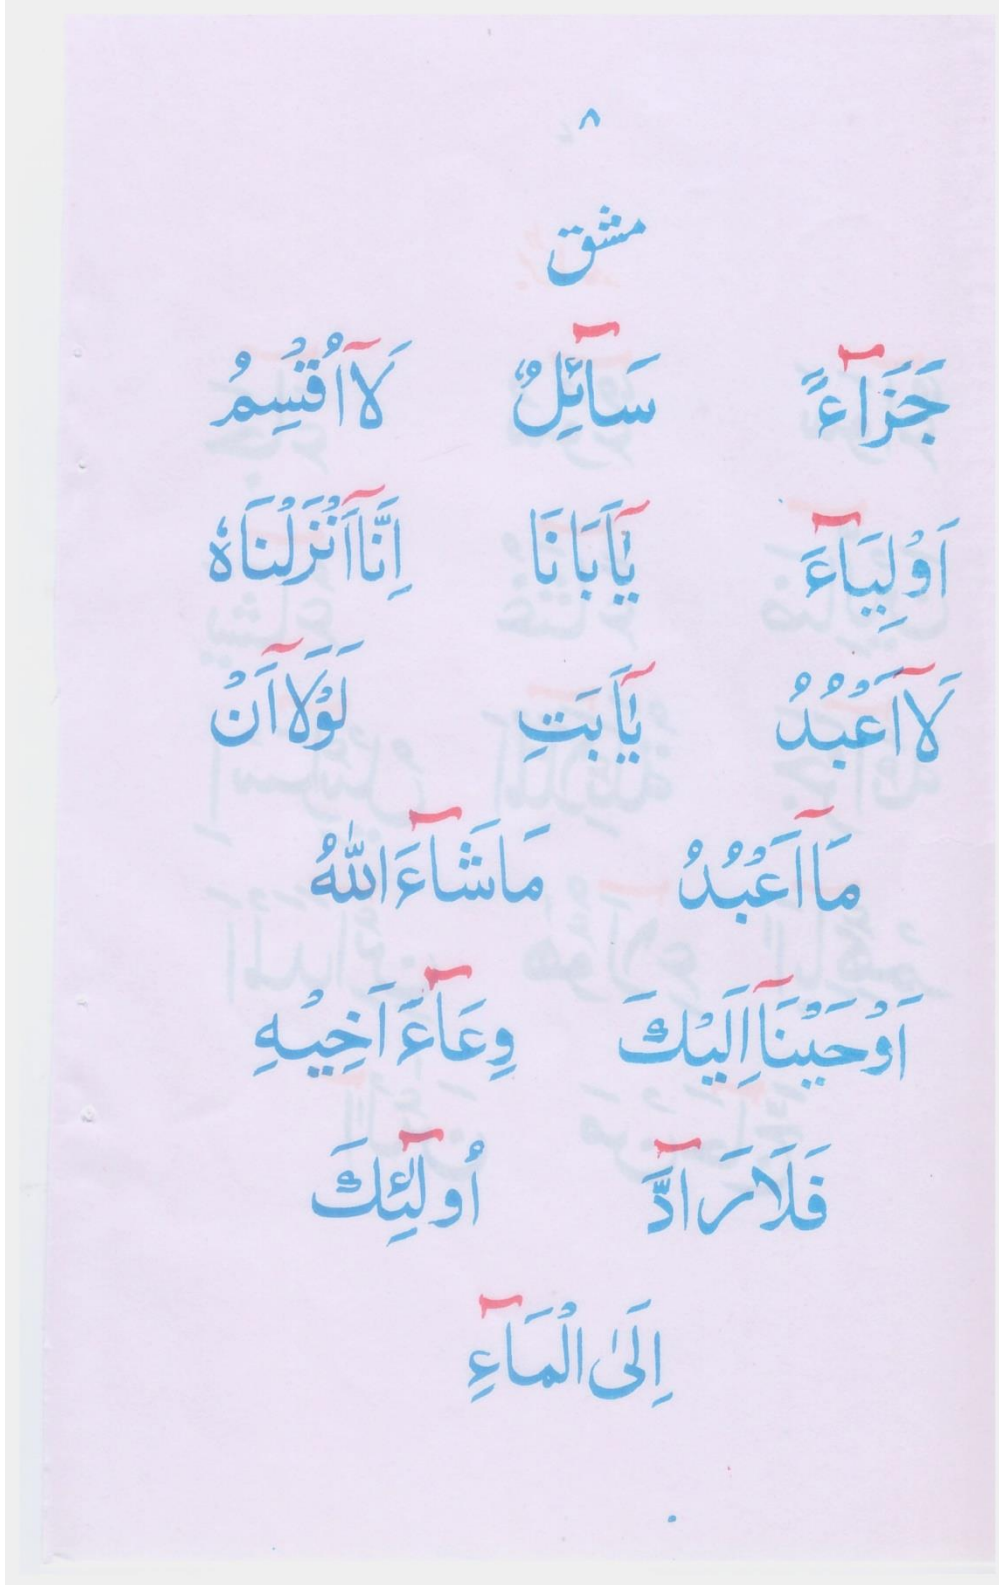 ٨
مشق
جَزَآءً سَآئِلٌ لَآ اُقْسِمُ
اَوْلِيَآءَ يٰٓاَبَانَا اِنَّآ اَنْزَلْنَاهُ
لَآ اَعْبُدُ يٰٓاَبَتِ لَوْلَآ اَنْ
مَآ اَعْبُدُ مَاشَآءَ اللّٰهُ
اَوْحَيْنَآ اِلَيْكَ وِعَآءَ اَخِيْهِ
فَلَا رَآدَّ اُولٰٓئِكَ
اِلَى الْمَآءِ